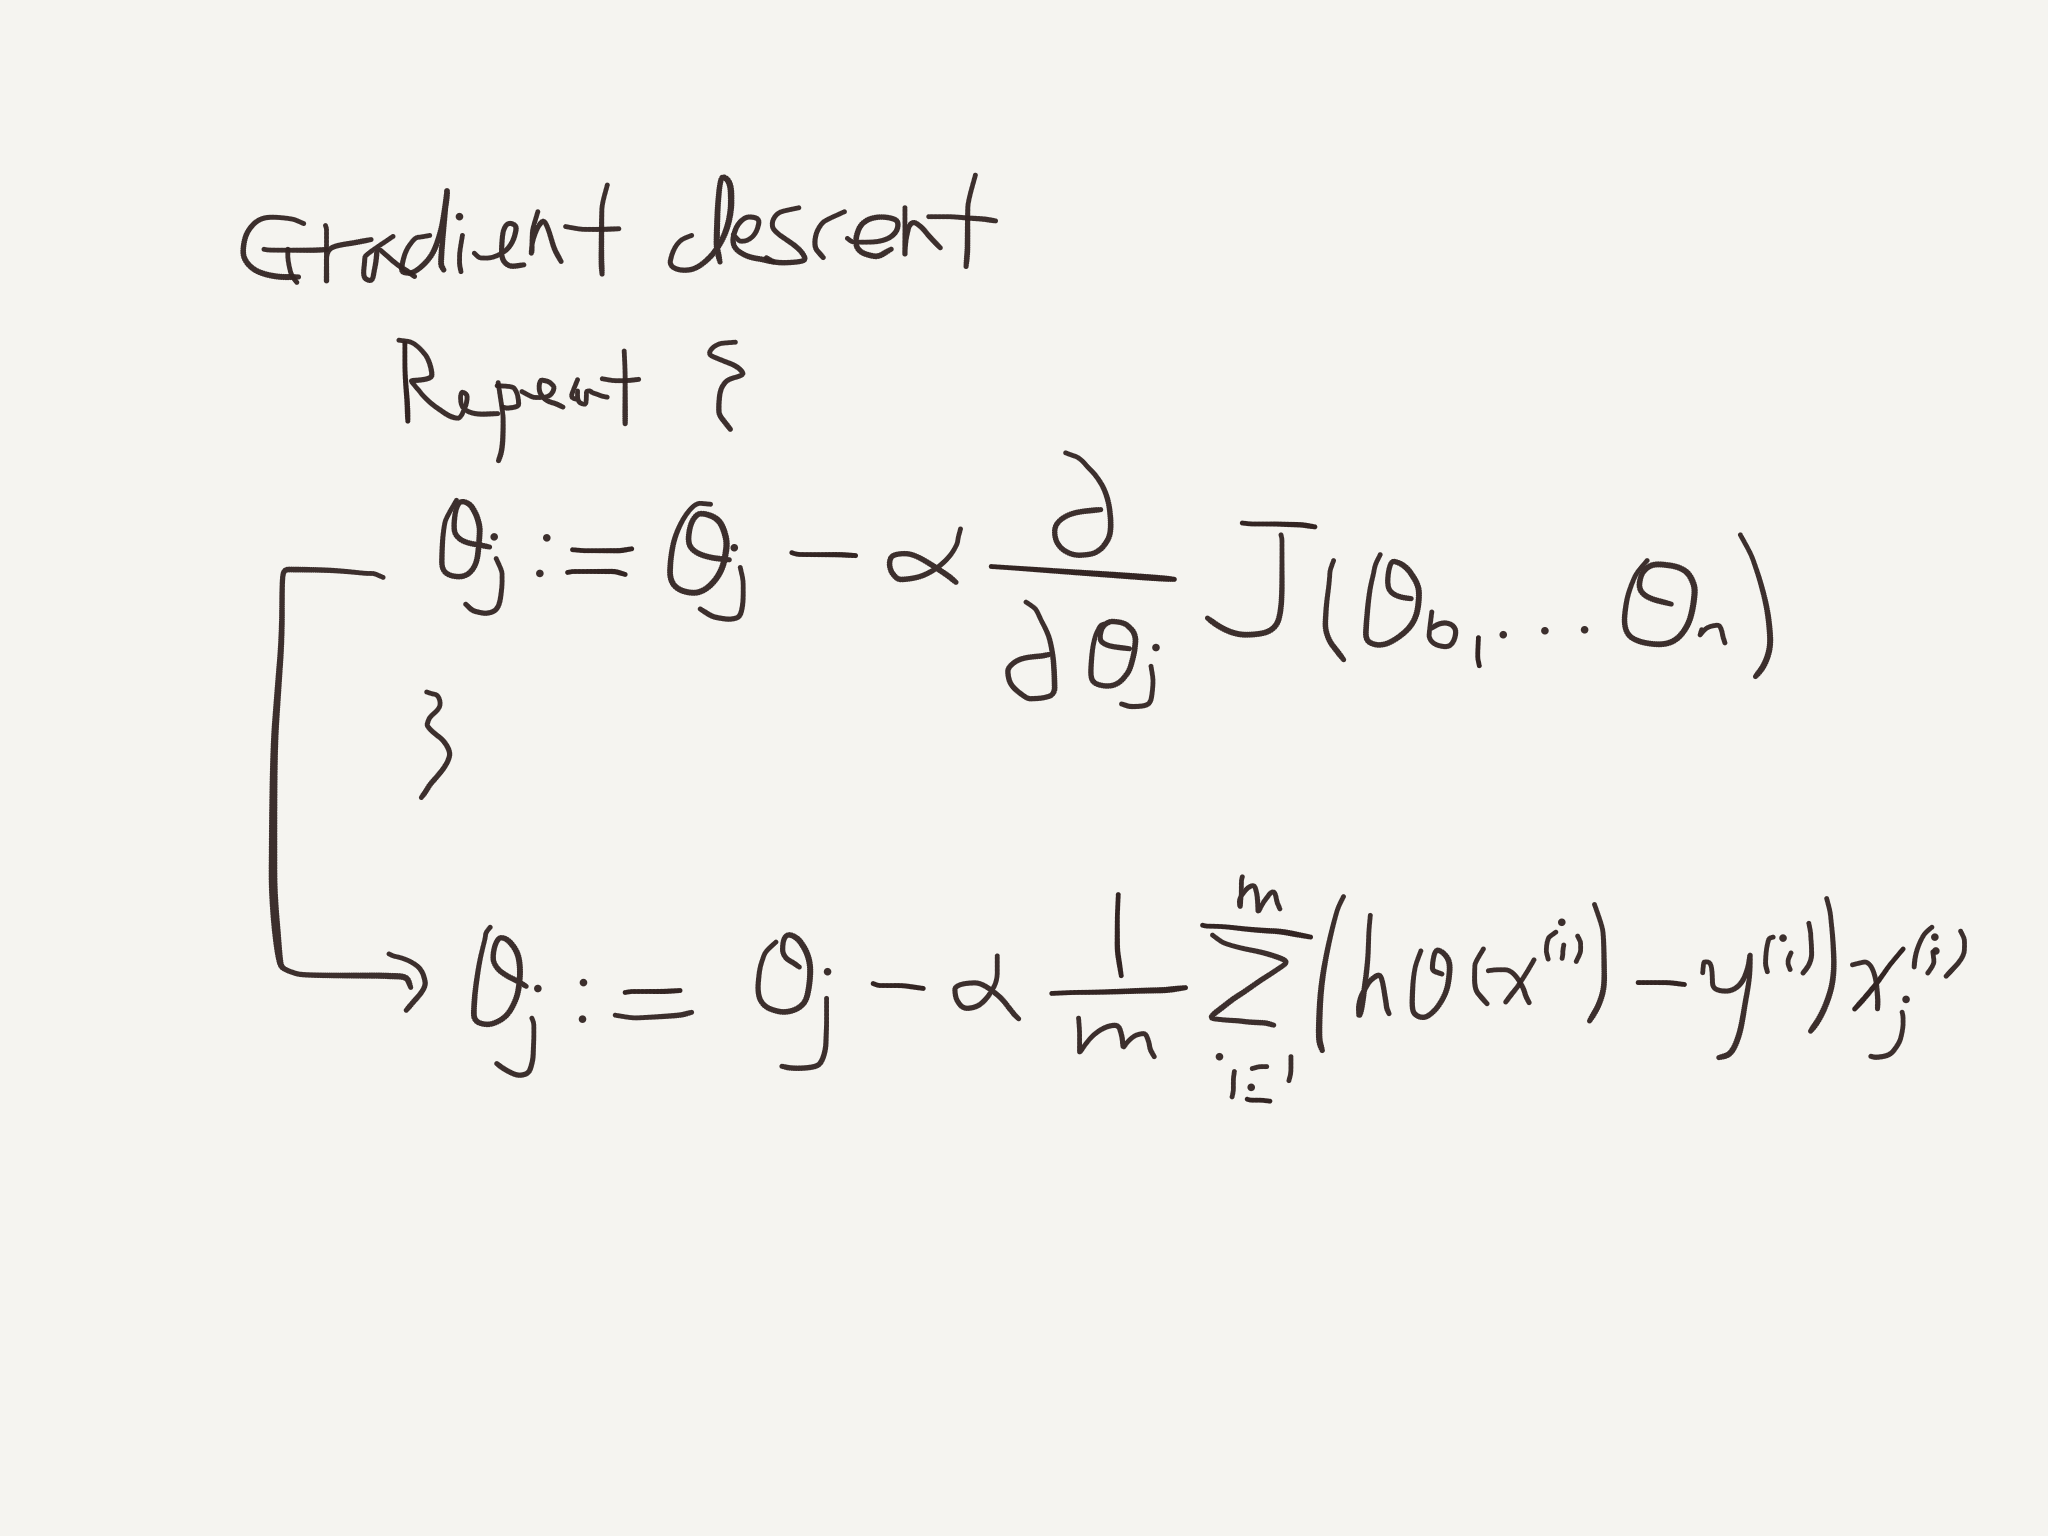 Gradient descent
Repeat {
θj := θj − α ∂/∂θj J(θ0, ... θn)
}
θj := θj − α 1/m ∑_{i=1}^{m} (hθ(x^(i)) − y^(i)) xj^(i)